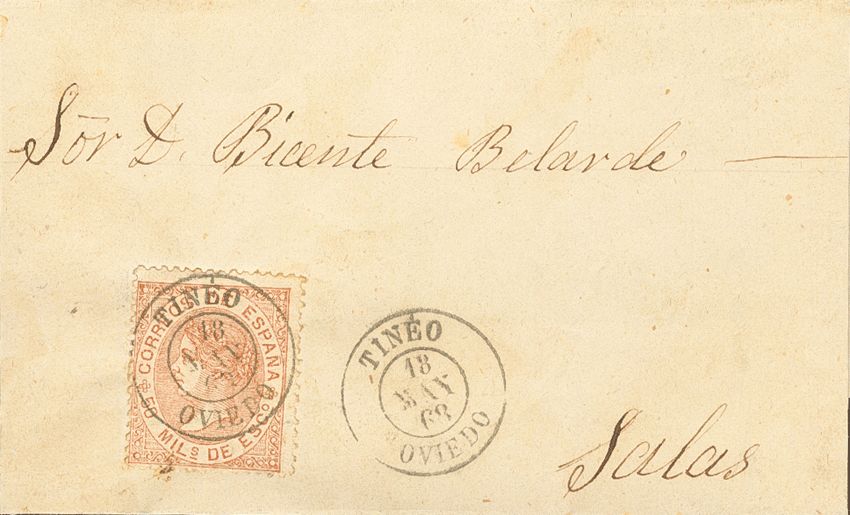 Sōr D. Bicente Belarde
CORREOS DE ESPAÑA
50 MILS DE ESCO
TINÉO
18
MAY
OVIEDO
TINÉO
18
MAY
69
OVIEDO
Salas